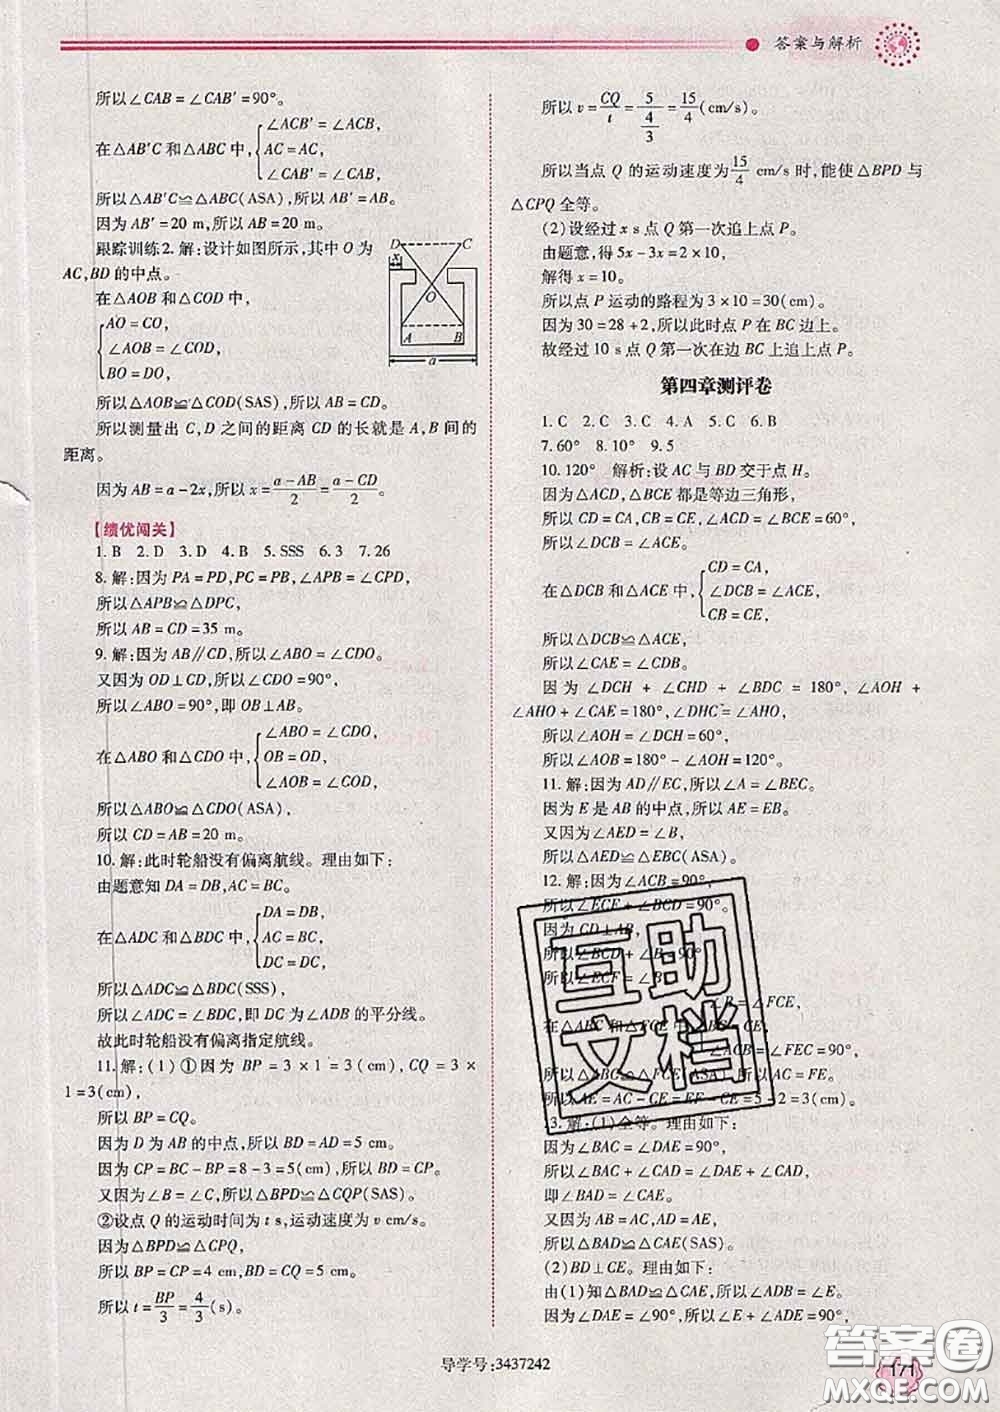 答案与解析
所以∠CAB=∠CAB′=90°。
在△AB′C 和△ABC 中,{∠ACB′=∠ACB,
AC=AC,
∠CAB′=∠CAB,
所以△AB′C≌△ABC(ASA),所以 AB′=AB。
因为 AB′=20 m,所以 AB=20 m。
跟踪训练2.解:设计如图所示,其中 O 为
AC,BD 的中点。
在△AOB 和△COD 中,
{AO=CO,
∠AOB=∠COD,
BO=DO,
所以△AOB≌△COD(SAS),所以 AB=CD。
所以测量出 C,D 之间的距离 CD 的长就是 A,B 间的
距离。
因为 AB=a-2x,所以 x=(a-AB)/2=(a-CD)/2。
D C
x
O
A B
a
【绩优闯关】
1. B 2. D 3. D 4. B 5. SSS 6. 3 7. 26
8. 解:因为 PA=PD,PC=PB,∠APB=∠CPD,
所以△APB≌△DPC,
所以 AB=CD=35 m。
9. 解:因为 AB∥CD,所以∠ABO=∠CDO。
又因为 OD⊥CD,所以∠CDO=90°,
所以∠ABO=90°,即 OB⊥AB。
在△ABO 和△CDO 中,{∠ABO=∠CDO,
OB=OD,
∠AOB=∠COD,
所以△ABO≌△CDO(ASA),
所以 CD=AB=20 m。
10. 解:此时轮船没有偏离航线。理由如下:
由题意知 DA=DB,AC=BC。
在△ADC 和△BDC 中,{DA=DB,
AC=BC,
DC=DC,
所以△ADC≌△BDC(SSS),
所以∠ADC=∠BDC,即 DC 为∠ADB 的平分线。
故此时轮船没有偏离指定航线。
11. 解:(1)①因为 BP=3×1=3(cm),CQ=3×
1=3(cm),
所以 BP=CQ。
因为 D 为 AB 的中点,所以 BD=AD=5 cm。
因为 CP=BC-BP=8-3=5(cm),所以 BD=CP。
又因为∠B=∠C,所以△BPD≌△CQP(SAS)。
②设点 Q 的运动时间为 t s,运动速度为 v cm/s。
因为△BPD≌△CPQ,
所以 BP=CP=4 cm,BD=CQ=5 cm。
所以 t=BP/3=4/3(s)。
所以 v=CQ/t=5/(4/3)=15/4(cm/s)。
所以当点 Q 的运动速度为15/4 cm/s 时,能使△BPD 与
△CPQ 全等。
(2)设经过 x s 点 Q 第一次追上点 P。
由题意,得 5x-3x=2×10,
解得 x=10。
所以点 P 运动的路程为 3×10=30(cm)。
因为 30=28+2,所以此时点 P 在 BC 边上。
故经过 10 s 点 Q 第一次在边 BC 上追上点 P。
第四章测评卷
1. C 2. C 3. C 4. A 5. C 6. B
7. 60° 8. 10° 9. 5
10. 120° 解析:设 AC 与 BD 交于点 H。
因为△ACD,△BCE 都是等边三角形,
所以 CD=CA,CB=CE,∠ACD=∠BCE=60°,
所以∠DCB=∠ACE。
在△DCB 和△ACE 中,{CD=CA,
∠DCB=∠ACE,
CB=CE,
所以△DCB≌△ACE,
所以∠CAE=∠CDB。
因为∠DCH+∠CHD+∠BDC=180°,∠AOH+
∠AHO+∠CAE=180°,∠DHC=∠AHO,
所以∠AOH=∠DCH=60°,
所以∠AOB=180°-∠AOH=120°。
11. 解:因为 AD∥EC,所以∠A=∠BEC。
因为 E 是 AB 的中点,所以 AE=EB。
又因为∠AED=∠B,
所以△AED≌△EBC(ASA)。
12. 解:因为∠ACB=90°,
所以∠ECF+∠BCD=90°。
因为 CD⊥AB,
所以∠BCD+∠B=90°
所以∠ECF=∠B
在△ABC 和△FCE 中,{∠B=∠FCE,
BC=CE,
∠ACB=∠FEC=90°,
所以△ABC≌△FCE(ASA),所以 AC=FE。
所以 AE=AC-CE=EF-CE=5-2=3(cm)。
13. 解:(1)全等。理由如下:
因为∠BAC=∠DAE=90°,
所以∠BAC+∠CAD=∠DAE+∠CAD,
即∠BAD=∠CAE。
又因为 AB=AC,AD=AE,
所以△BAD≌△CAE(SAS)。
(2)BD⊥CE。理由如下:
由(1)知△BAD≌△CAE,所以∠ADB=∠E。
因为∠DAE=∠90°,所以∠E+∠ADE=90°,
互助
文档
导学号:3437242
171
答案圈
MXQE.COM